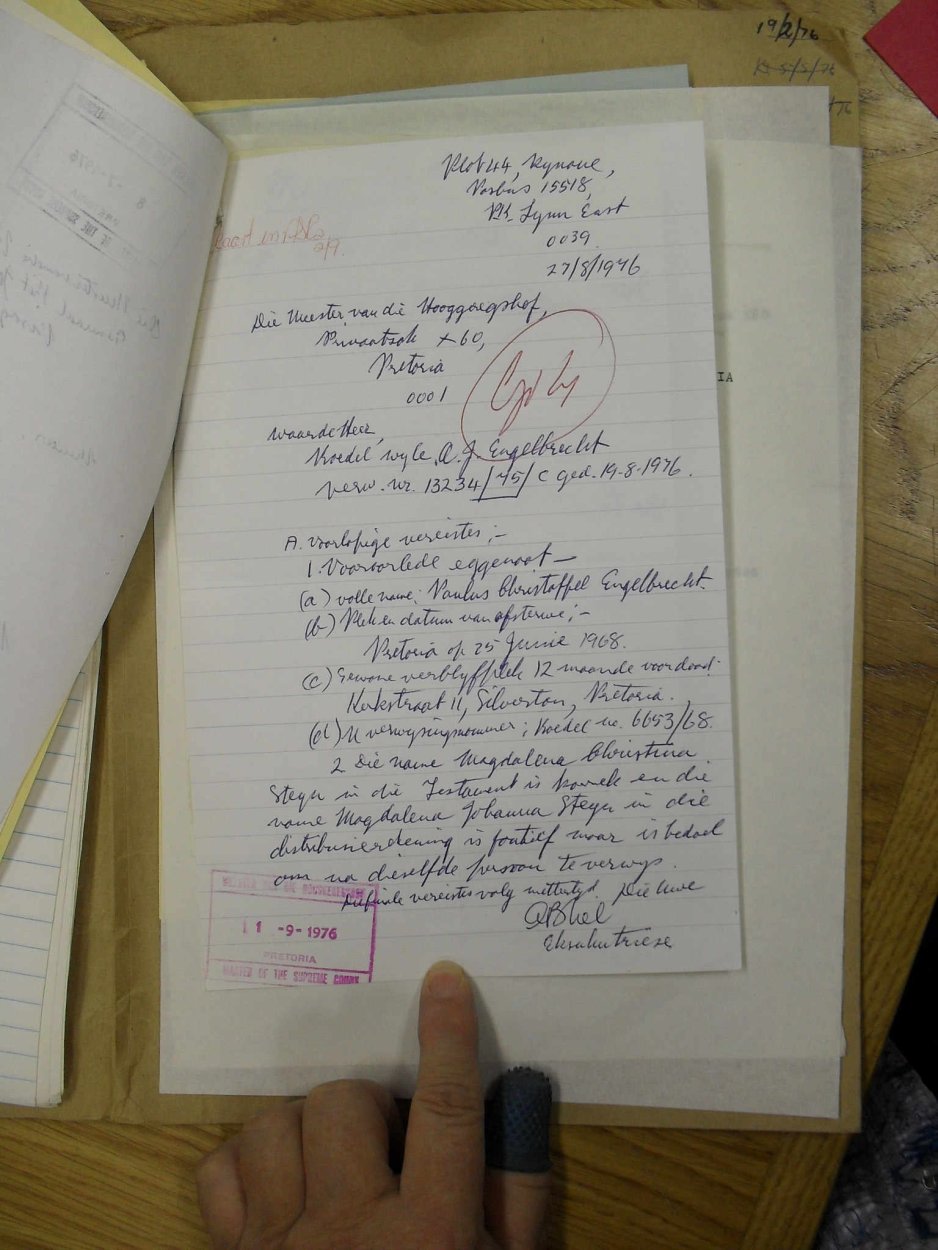 19/2/76
5/2/76
Plot 44, Kynoue,
Posbus 15518,
PK. Lynn East
0039
27/8/1976
2/9.
Die Meester van die Hooggeregshof,
Privaatsak X60,
Pretoria
0001
IA
Waarde Heer,
Boedel wyle A. J. Engelbrecht
verw. nr. 13234/75/C ged. 19-8-1976.
A. Voorlopige vereistes;-
1. Vooroorlede eggenoot —
(a) volle name: Paulus Christoffel Engelbrecht.
(b) Plek en datum van afsterwe;-
Pretoria op 25 Junie 1968.
(c) Gewone verblyfplek 12 maande voor dood:
Kerkstraat 11, Silverton, Pretoria.
(d) U verwysingsnommer; Boedel no. 6653/68.
2. Die name Magdalena Christina
Steyn in die Testament is korrek en die
name Magdalena Johanna Steyn in die
distribusierekening is foutief maar is bedoel
om na dieselfde persoon te verwys.
Die finale vereistes volg mettertyd. Die Uwe
Eksekutriese
11 -9-1976
PRETORIA
MASTER OF THE SUPREME COURT